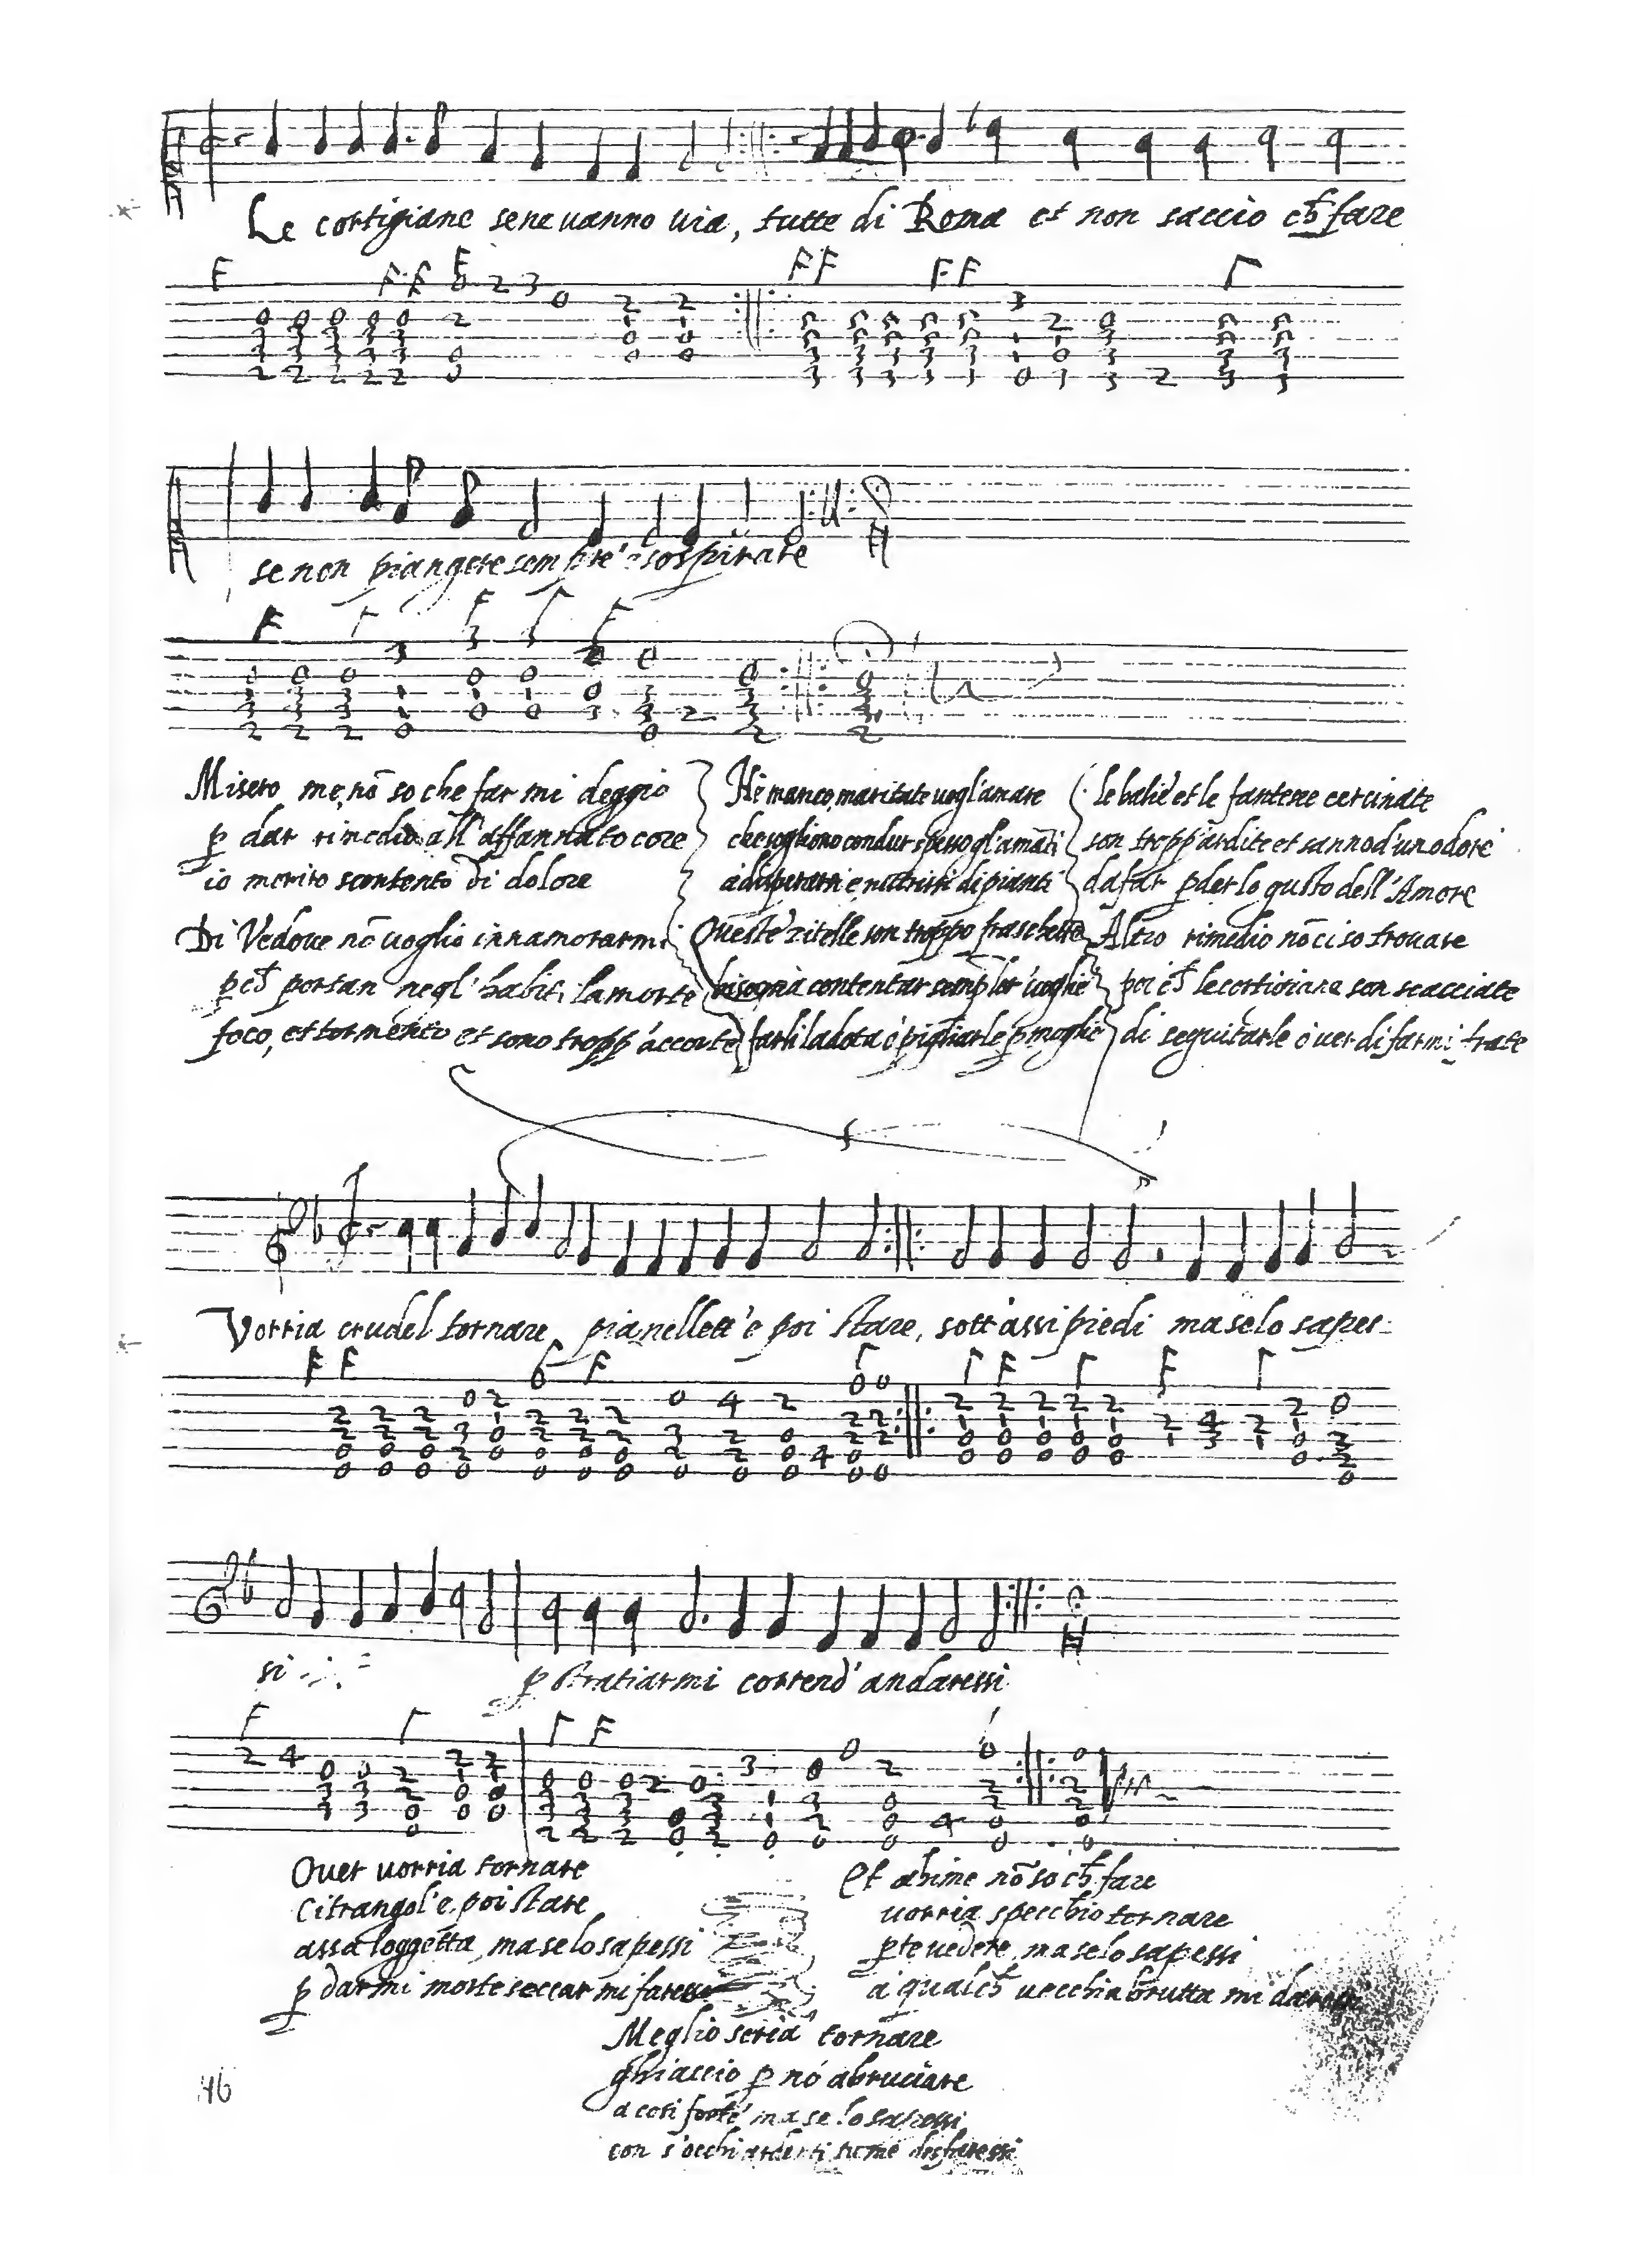 Le cortigiane sene vanno via, tutte di Roma et non saccio ch fare
se non piangere sempre e sospirare
Misero me, nõ so che far mi deggio
p dar rimedio all'affannato core
io merito scontento di dolore
Di Vedove nõ voglio innamorarmi
pch portan negl'habiti la morte
foco, et tormento et sono tropp'accorte
Ne manco maritate vogl'amare
che vogliono condur spesso gl'amãti
a disperarsi e nutrirsi di pianti
Queste zitelle son troppo fraschette
bisogna contentar semp lor voglie
farli la dota o pigliarle p moglie
le balie et le fantene
son tropp'ardite et sanno d'un odore
da far pder lo gusto dell'Amore
Altro rimedio nõ ci so trovare
poi ch le cortigiane son scacciate
di seguitarle over di farmi frate
Vorria crudel tornare, pianellett'e poi stare, sott'assi piedi ma se lo sapes-
si
p stratiarmi corrend'andaressi
Over vorria tornare
Citrangol'e poi stare
assa loggetta, ma se lo sapessi
p darmi morte seccar mi faressi
Et ahime nõ so ch fare
vorria specchio tornare
p te vedere, ma se lo sapessi
a qualch vecchia brutta mi daressi
Meglio seria tornare
ghiaccio p nõ abruciare
a cosi forte ma se lo sapessi
con s'occhi ardenti tu me disfaressi
46